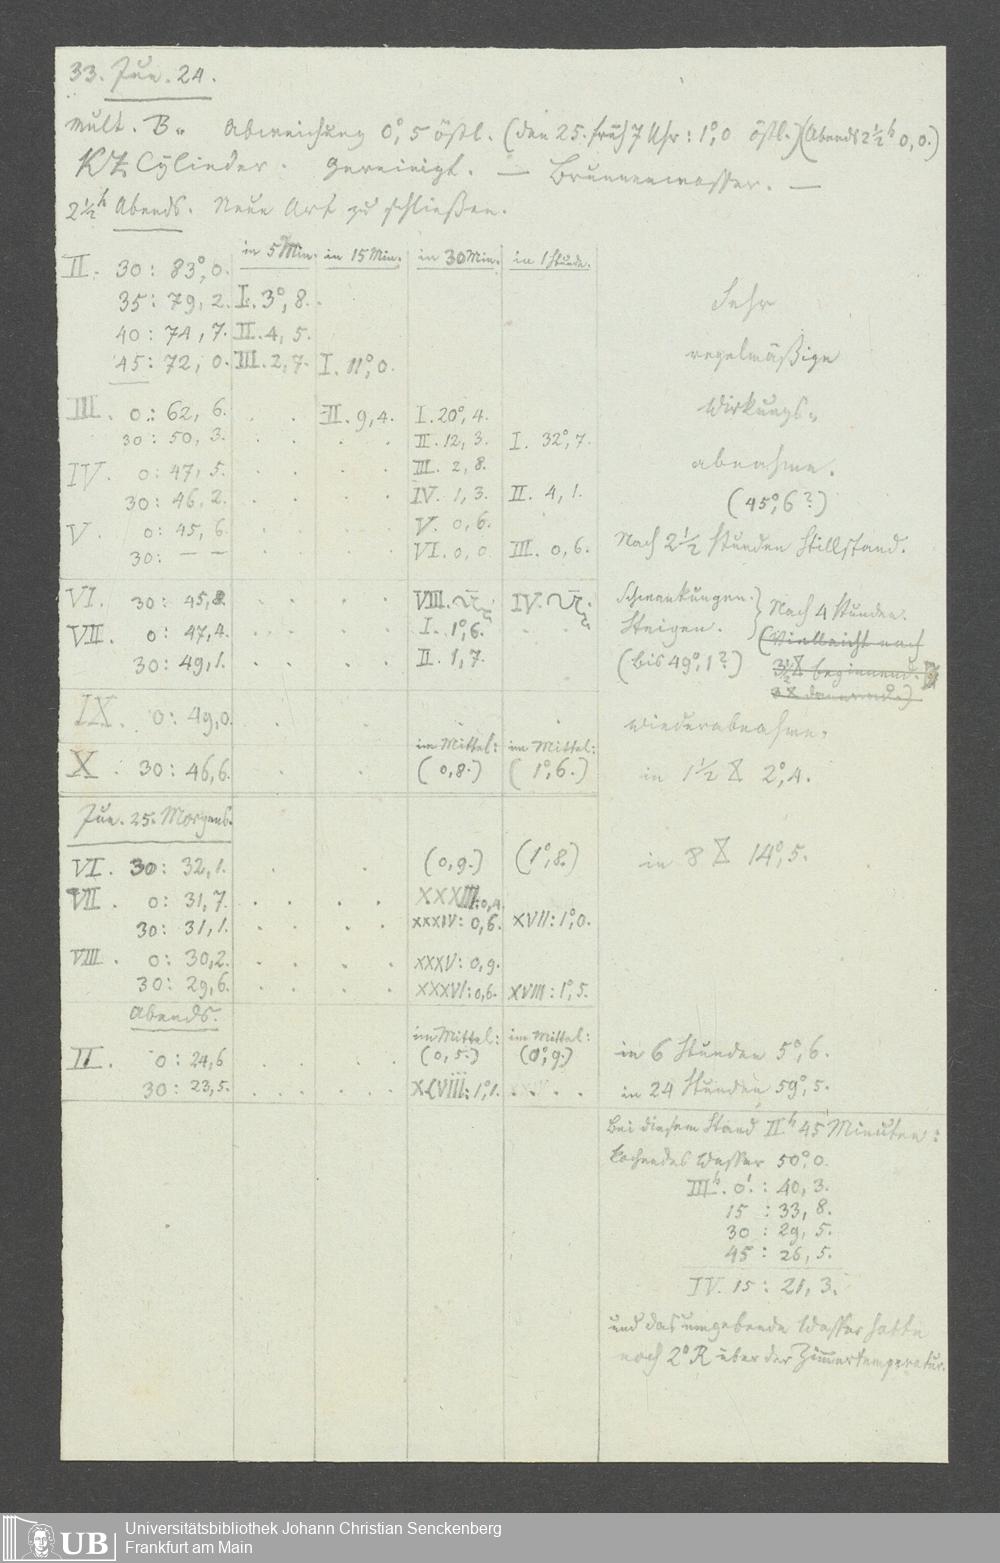 33. Jun. 24.
Mult. B. Abweichung 0°,5 östl. (den 25. früh 7 Uhr: 1°,0 östl.) (Abends 2½h 0,0.)
KZ Cylinder. Gereinigt. — Brunnenwasser. —
2½h Abends. Neue Art zu schließen.
in 5 Min. in 15 Min. in 30 Min. in 1 Stunde.
II. 30: 83°,0.
35: 79, 2. I. 3°, 8. Sehr
40: 74, 7. II. 4, 5.
45: 72, 0. III. 2, 7. I. 11°, 0. regelmäßige
III. 0: 62, 6. . . II. 9, 4. I. 20°, 4. Wirkungs-
30: 50, 3. . . . . II. 12, 3. I. 32°, 7.
IV. 0: 47, 5. . . . . III. 2, 8. abnahme.
30: 46, 2. . . . . IV. 1, 3. II. 4, 1. (45°,6?)
V. 0: 45, 6. . . . . V. 0, 6.
30: — — . . . . VI. 0, 0 III. 0, 6. Nach 2½ Stunden Stillstand.
VI. 30: 45,8. . . . . VIII. IV. Schwankungen. } Nach 4 Stunden.
VII. 0: 47,4. . . . . I. 1°,6. . . Steigen. (Vielleicht nach
30: 49,1. . . . . II. 1,7. (bis 49°,1?) 3½ beginnend.
dauernd.)
IX. 0: 49,0. Wiederabnahme,
im Mittel: im Mittel:
X. 30: 46,6. . . (0,8.) (1°,6.) in 1½ 2°,4.
Jun. 25. Morgens.
VI. 30: 32,1. . . (0,9.) (1°,8.) in 8 14°, 5.
VII. 0: 31,7. . . . . XXXIII: 0,4.
30: 31,1. . . . . XXXIV: 0,6. XVII: 1°,0.
VIII. 0: 30,2. . . . . XXXV: 0,9.
30: 29,6. . . . . XXXVI: 0,6. XVIII: 1°,5.
Abends.
im Mittel: im Mittel:
II. 0: 24,6 . . . (0,5.) (0°,9.) in 6 Stunden 5°, 6.
30: 23,5. . . . . XLVIII: 1°,1. . . . . in 24 Stunden 59°, 5.
Bei diesem Stand IIh 45 Minuten:
kochendes Wasser 50°,0.
IIIh. 0': 40, 3.
15 : 33, 8.
30 : 29, 5.
45 : 26, 5.
IV. 15 : 21, 3.
und das umgebende Wasser hatte
noch 2° R über der Zimmertemperatur.
UB Universitätsbibliothek Johann Christian Senckenberg
Frankfurt am Main